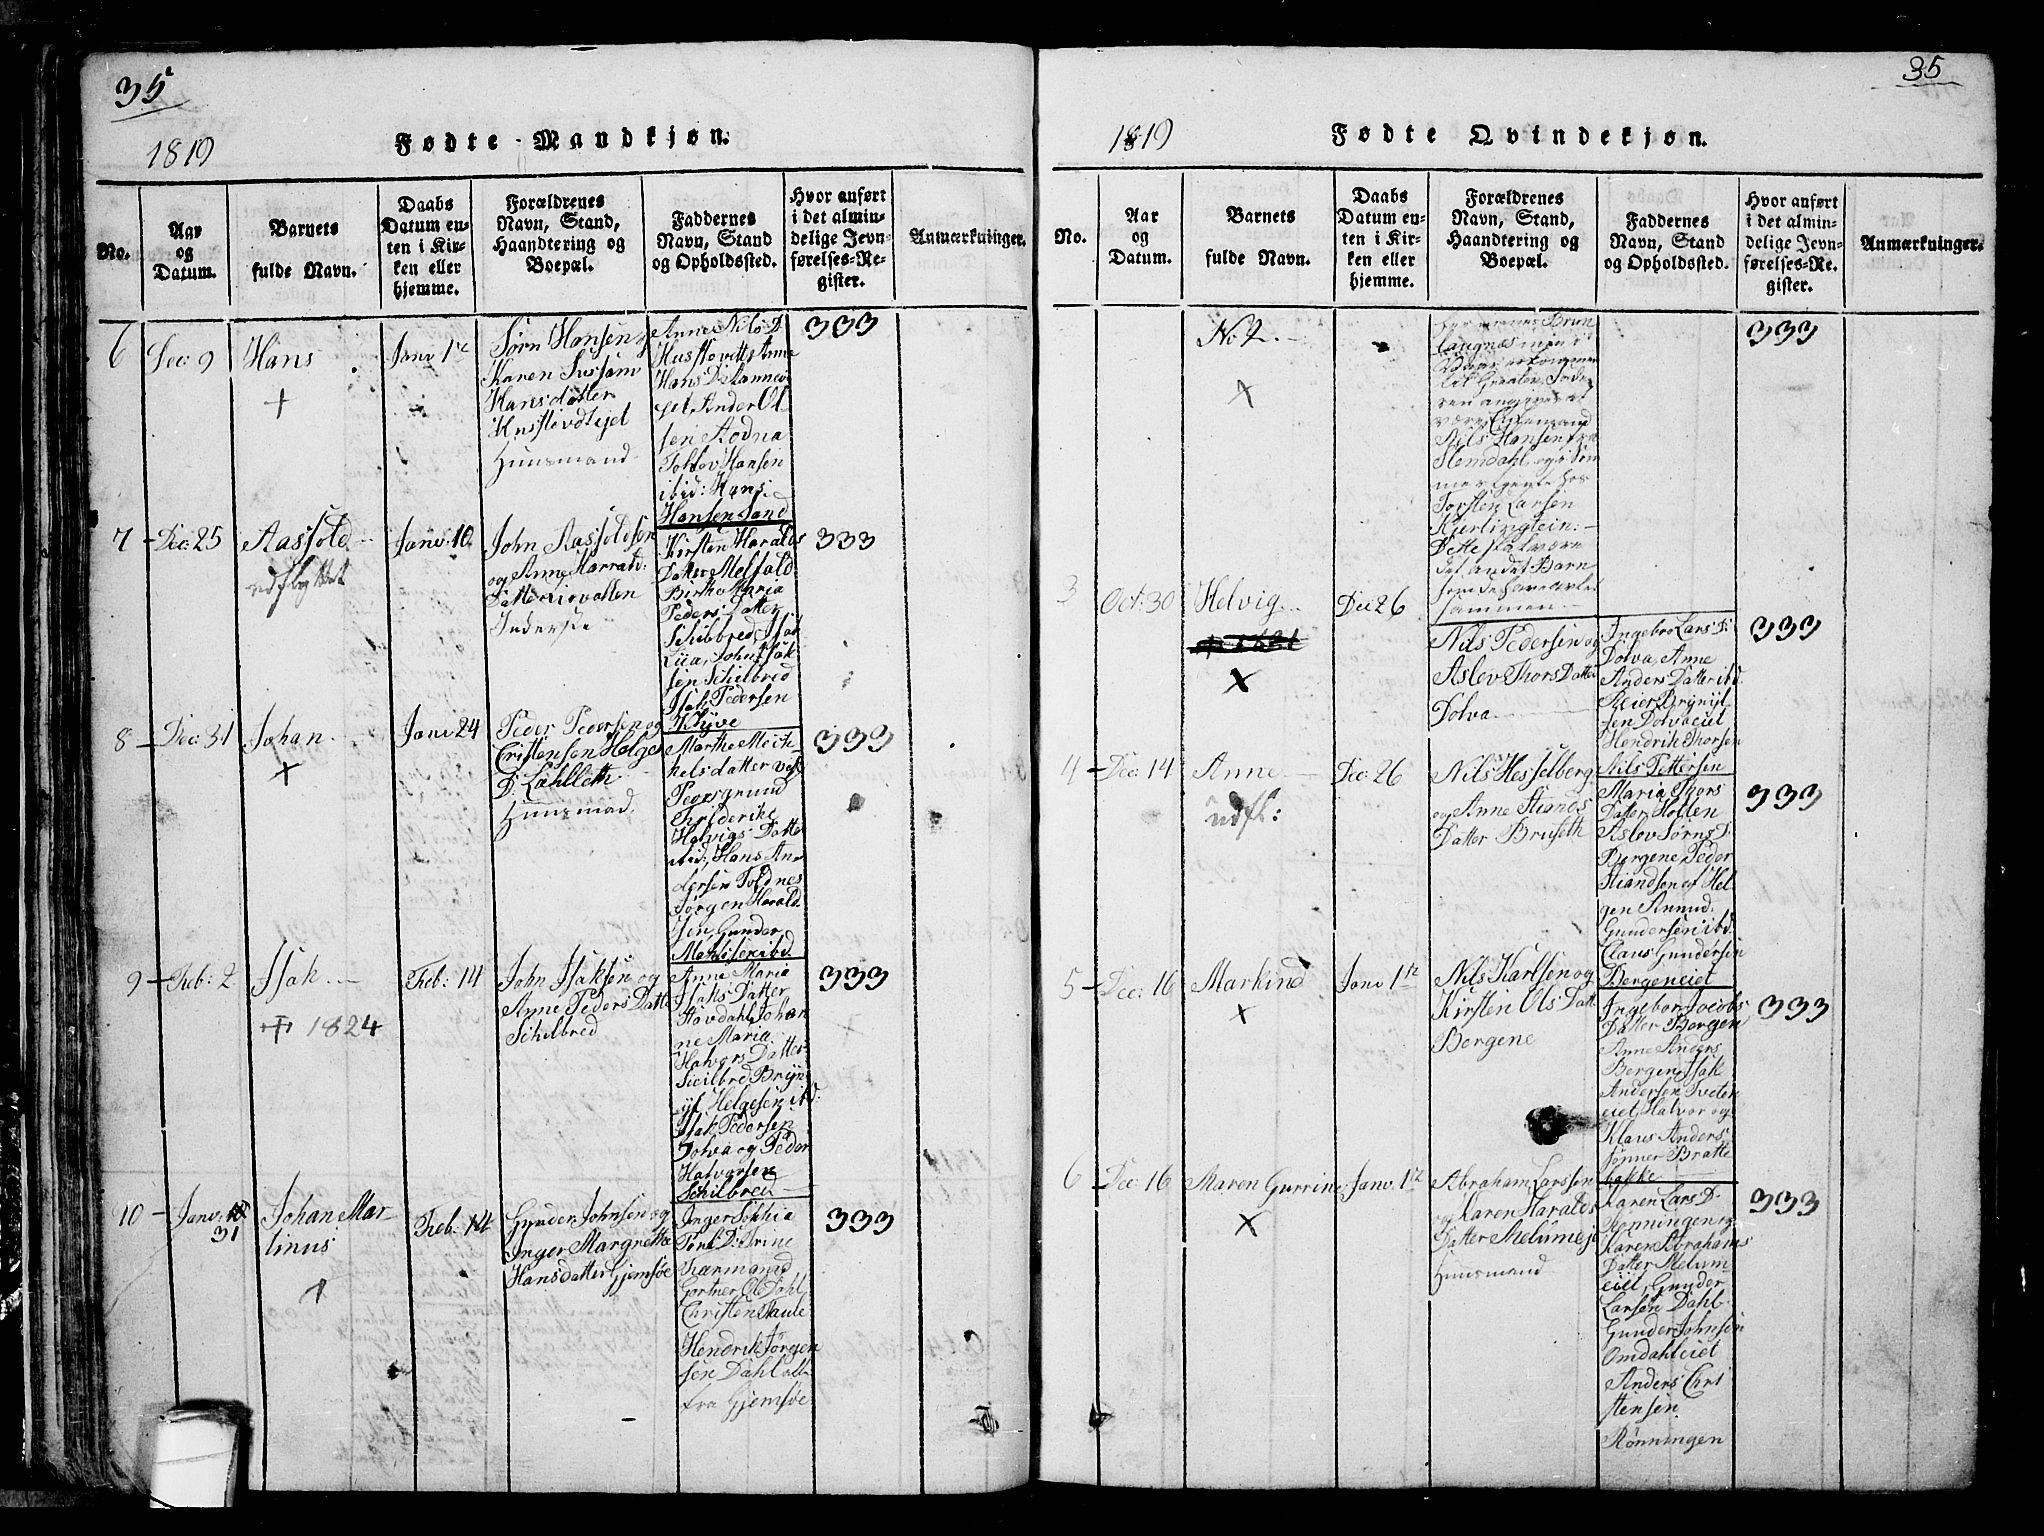 35
1819
Fødte Mandkjøn.
No.
Aar og Datum.
Barnets fulde Navn.
Daabs Datum enten i Kirken eller hjemme.
Forældrenes Navn, Stand, Haandtering og Boepæl.
Faddernes Navn, Stand og Opholdssted.
Hvor anført i det almindelige Jevnførelses-Register.
Anmærkninger.
6
Dec: 9
Hans
+
Janv 1te
Sørn Hansen og
Karen
Hansdatter
Huusmand
Anne Nils D
Hans D
Anders Ol
sen Aodna
Tollev Hansen
ibid: Hans
Hansen Sand
333
7
Dec: 25
Aassold
udflyttet
Janv: 10
John Aassoldsen
og Anne Harrald:
Datter
Inderste
Kirsten Haralds
Datter Melfald
Maria
Peders Datter
Schilbred, Isak
Lia, John Isak
sen Schilbred
Isak Pedersen
Klyve
333
8
Dec: 31
Johan
+
Janv 24
Peder Pedersen og
Cristensen Helge
D:
Huusmad.
Marthe Mich
kelsdatter
Porsgrund
Friderike
Helvigs Datte
ibid:, Hans An
dersen Foldnes
Jørgen Harald
sen, Gunder
Mathisen ibd.
333
9
Feb: 2
Isak
+ 1824
Feb: 14
John Isaksen og
Anne Peders Datte
Schilbred
Anne Maria
Isaks Datter
Hovdahl, Johan
ne Maria
Halvors Datter
Scilbred Bryn
yl Helgesen ibd:
Isak Pedersen
Dolva og Peder
Halvorsen
Schilbred
333
10
Janv: 31
Johan Mar
tinus
+
Feb: 14
Gunder Johnsen og
Inger Margrethe
Hansdatter Gjemsøe
Inger Sophia
Povl D: Trine
Gortner Ol Dahl
Christen Paule
Hendrik Jørgen
sen Dahl all
fra Gjemsøe
333
35
1819
Fødte Qvindekjøn.
No.
Aar og Datum.
Barnets fulde Navn.
Daabs Datum enten i Kirken eller hjemme.
Forældrenes Navn, Stand, Haandtering og Boepæl.
Faddernes Navn, Stand og Opholdssted.
Hvor anført i det almindelige Jevnførelses-Register.
Anmærkninger.
No 2.
X
Brun
langnæs
ren angives at
være
Nils Hansen fra
Slemdahl
Torsten Larsen
Kjerlingtein:
Dette skal være
det andet Barn
som de have avlet
sammen
333
3
Oct: 30
Helvig
X
Dec 26
Nils Pedersen og
Aslov Thors Datter
Dolva
Ingebro Lars D:
Dolva, Anne
Anders Datter ibd.
Reier Brynyl
sen Dolvaeiet
Hendrik Thorsen
Nils Pettersen
333
4
Dec: 14
Anne
udfl:
Dec: 26
Nils Hesselberg
og Anne Stiands
Datter Bruseth
Maria Thors
Datter Holten
Aslov Sørns D.
Bergene Peder
Stiandsen af Hel
gen Amund
Gundersen ibd.
Claus Gundersen
Bergeneiet
333
5
Dec: 16
Markind
X
Janv 1te
Nils Karlsen og
Kirsten Ols Datt
Bergene
Ingebor Jocobs
Datter Bergen
Anne Anders
Bergen, Isak
Andersen Tveten
eiet, Halvor og
Klaus Anders
sønner Bratte
bakke
333
6
Dec: 16
Maren Gurrine
X
Janv. 1te
Abraham Larssen
og Karen Haralds
Datter Melumeje
Huusmand
Karen Lars D.
Rønningen og
Karen Abrahams
Datter Melum
eiet, Gunder
Larsen Dahl
Gunder Johnsen
Omdahleiet
Anders Chri
stensen
Rønningen
333